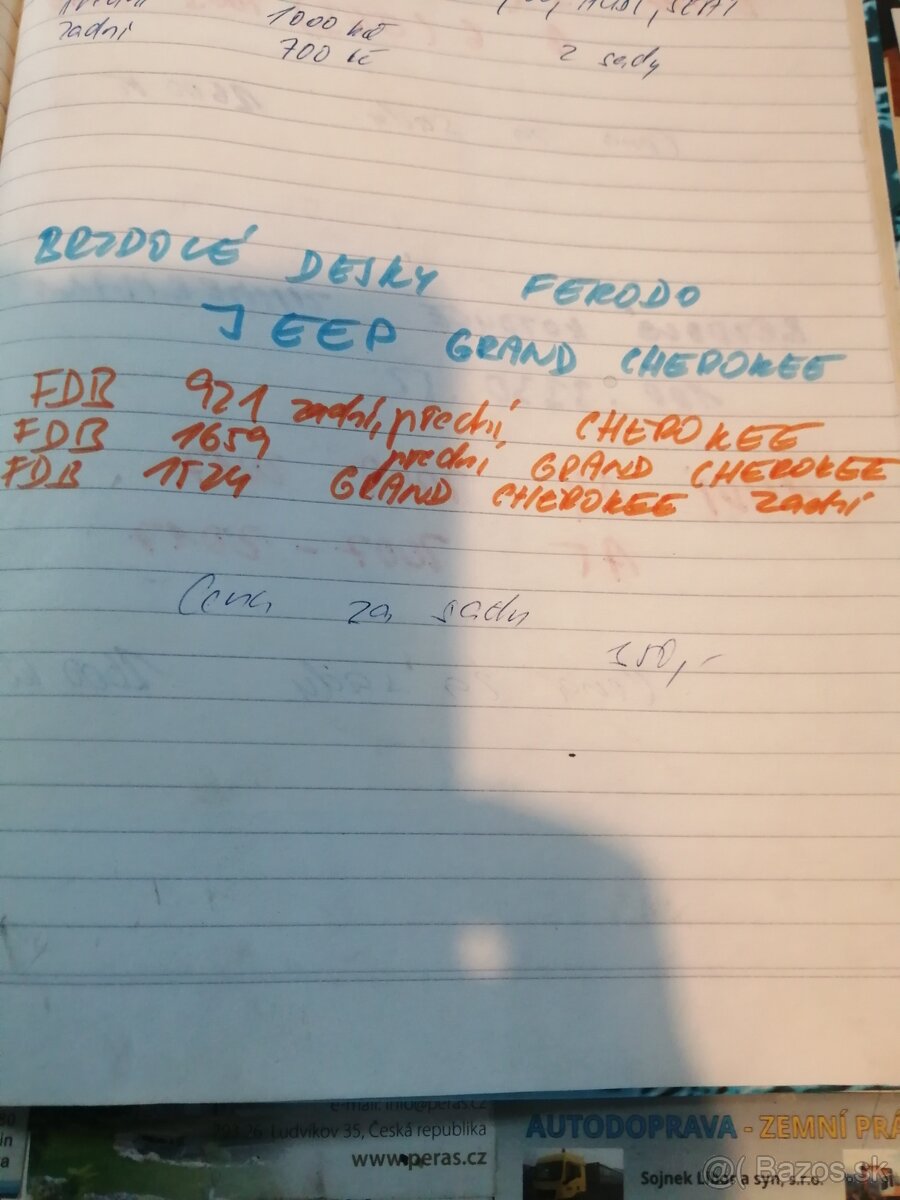 zadní 1000 kč
700 kč 2 sady
BRZDOVÉ DESKY FERODO
JEEP GRAND CHEROKEE
FDB 921 zadní, přední CHEROKEE
FDB 1659 přední GRAND CHEROKEE
FDB 1524 GRAND CHEROKEE zadní
Cena za sadu
350,-
e-mail: info@peras.cz
793 26 Ludvíkov 35, Česká republika
www.peras.cz
AUTODOPRAVA - ZEMNÍ PRÁ
Sojnek Libor a syn, s.r.o.
Bazos.sk